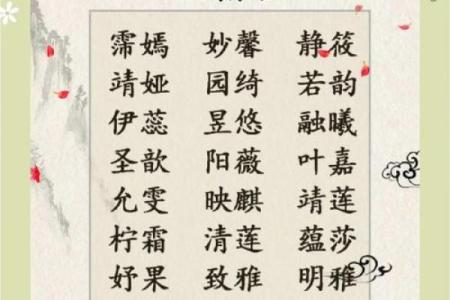 霈嫣 妙馨 静筱
靖娅 园绮 若韵
伊蕊 昱悠 融曦
圣歆 阳薇 叶嘉
允雯 映麒 靖莲
柠霜 清莲 蕴莎
妤果 致雅 明雅